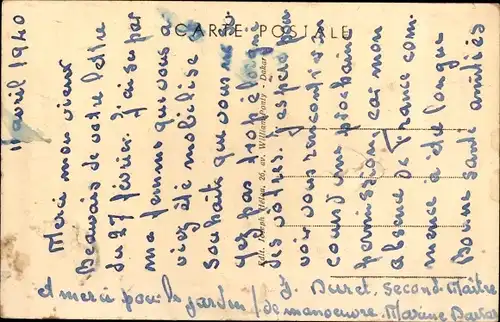 CARTE POSTALE
avril 1940
Merci mon vieux
Beauvais de votre lettre
du 27 février. J'ai su par
ma femme que vous a
viez été mobilisé
souhaite que vous ne
soyez pas trop éloigné
des vôtres. J'espère pou
voir vous rencontrer au
cours d'une prochaine
permission, car mon
absence de France com
mence à être longue
Bonne santé amitiés
et merci pour le jardin / J. Duret, second-Maître
de manoeuvre. Marine Dakar
Edit. Joseph Hélou, 26, av. William-Ponty - Dakar